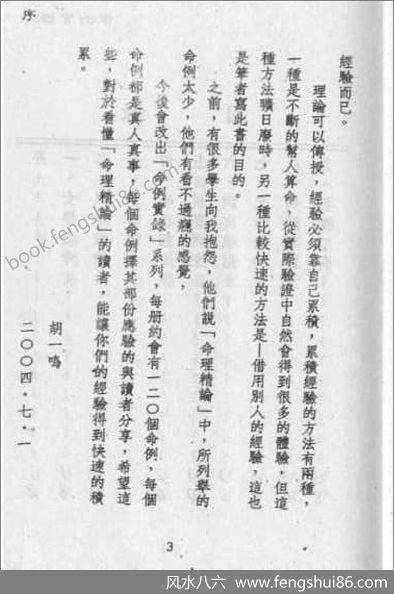 序
經驗而已。
理論可以傳授，經驗必須靠自己累積，累積經驗的方法有兩種，
一種是不斷的幫人算命，從實際驗證中自然會得到很多的體驗，但這
種方法曠日廢時，另一種比較快速的方法是—借用別人的經驗，這也
是筆者寫此書的目的。
之前，有很多學生向我抱怨，他們說「命理精論」中，所列舉的
命例太少，他們有看不過癮的感覺，
今後會改出「命例實錄」系列，每册約會有一二○個命例，每個
命例都是真人真事，每個命例擇其部份應驗的與讀者分享，希望這
些，對於看懂「命理精論」的讀者，能讓你們的經驗得到快速的積
累。
胡一鳴
二○○四・七・一
3
book.fengshui86.com
风水八六 www.fengshui86.com